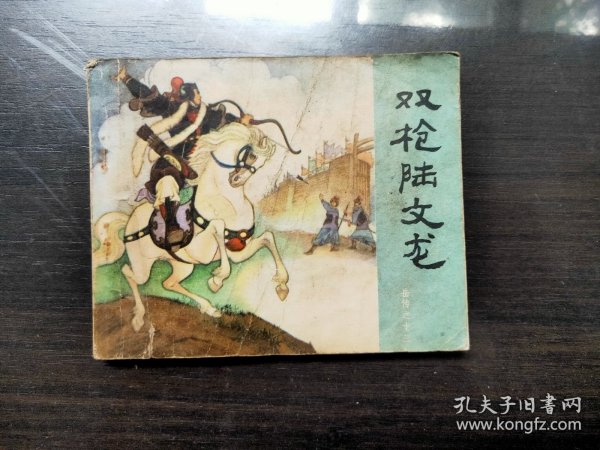 双枪陆文龙
岳传之十三
孔夫子旧书网
www.kongfz.com